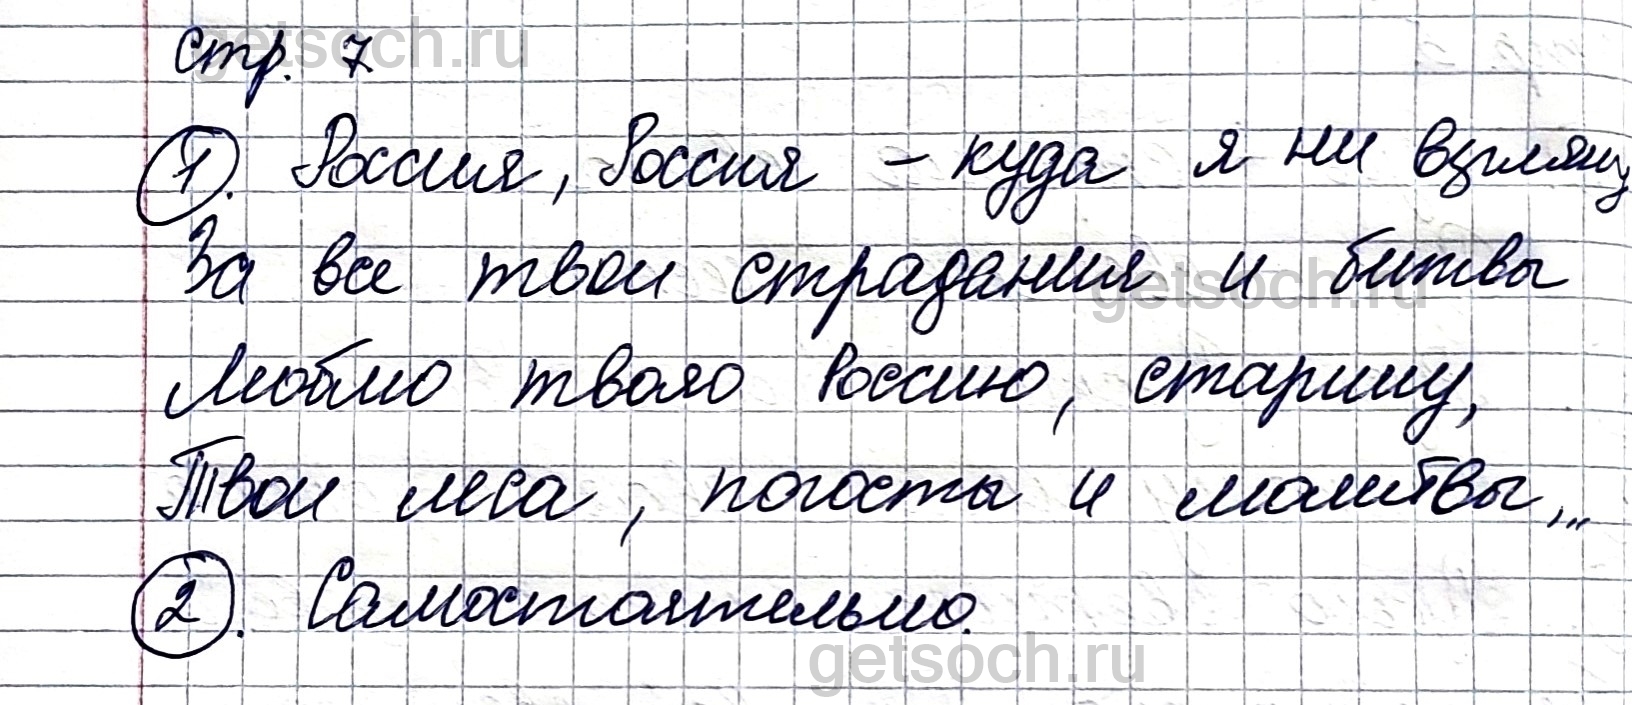 стр. 7
getsoch.ru
1. Россия, Россия – куда я ни взгляну
За все твои страдания и битвы
getsoch.ru
Люблю твою Россию, старину,
Твои леса, погосты и молитвы,..
2. Самостоятельно.
getsoch.ru